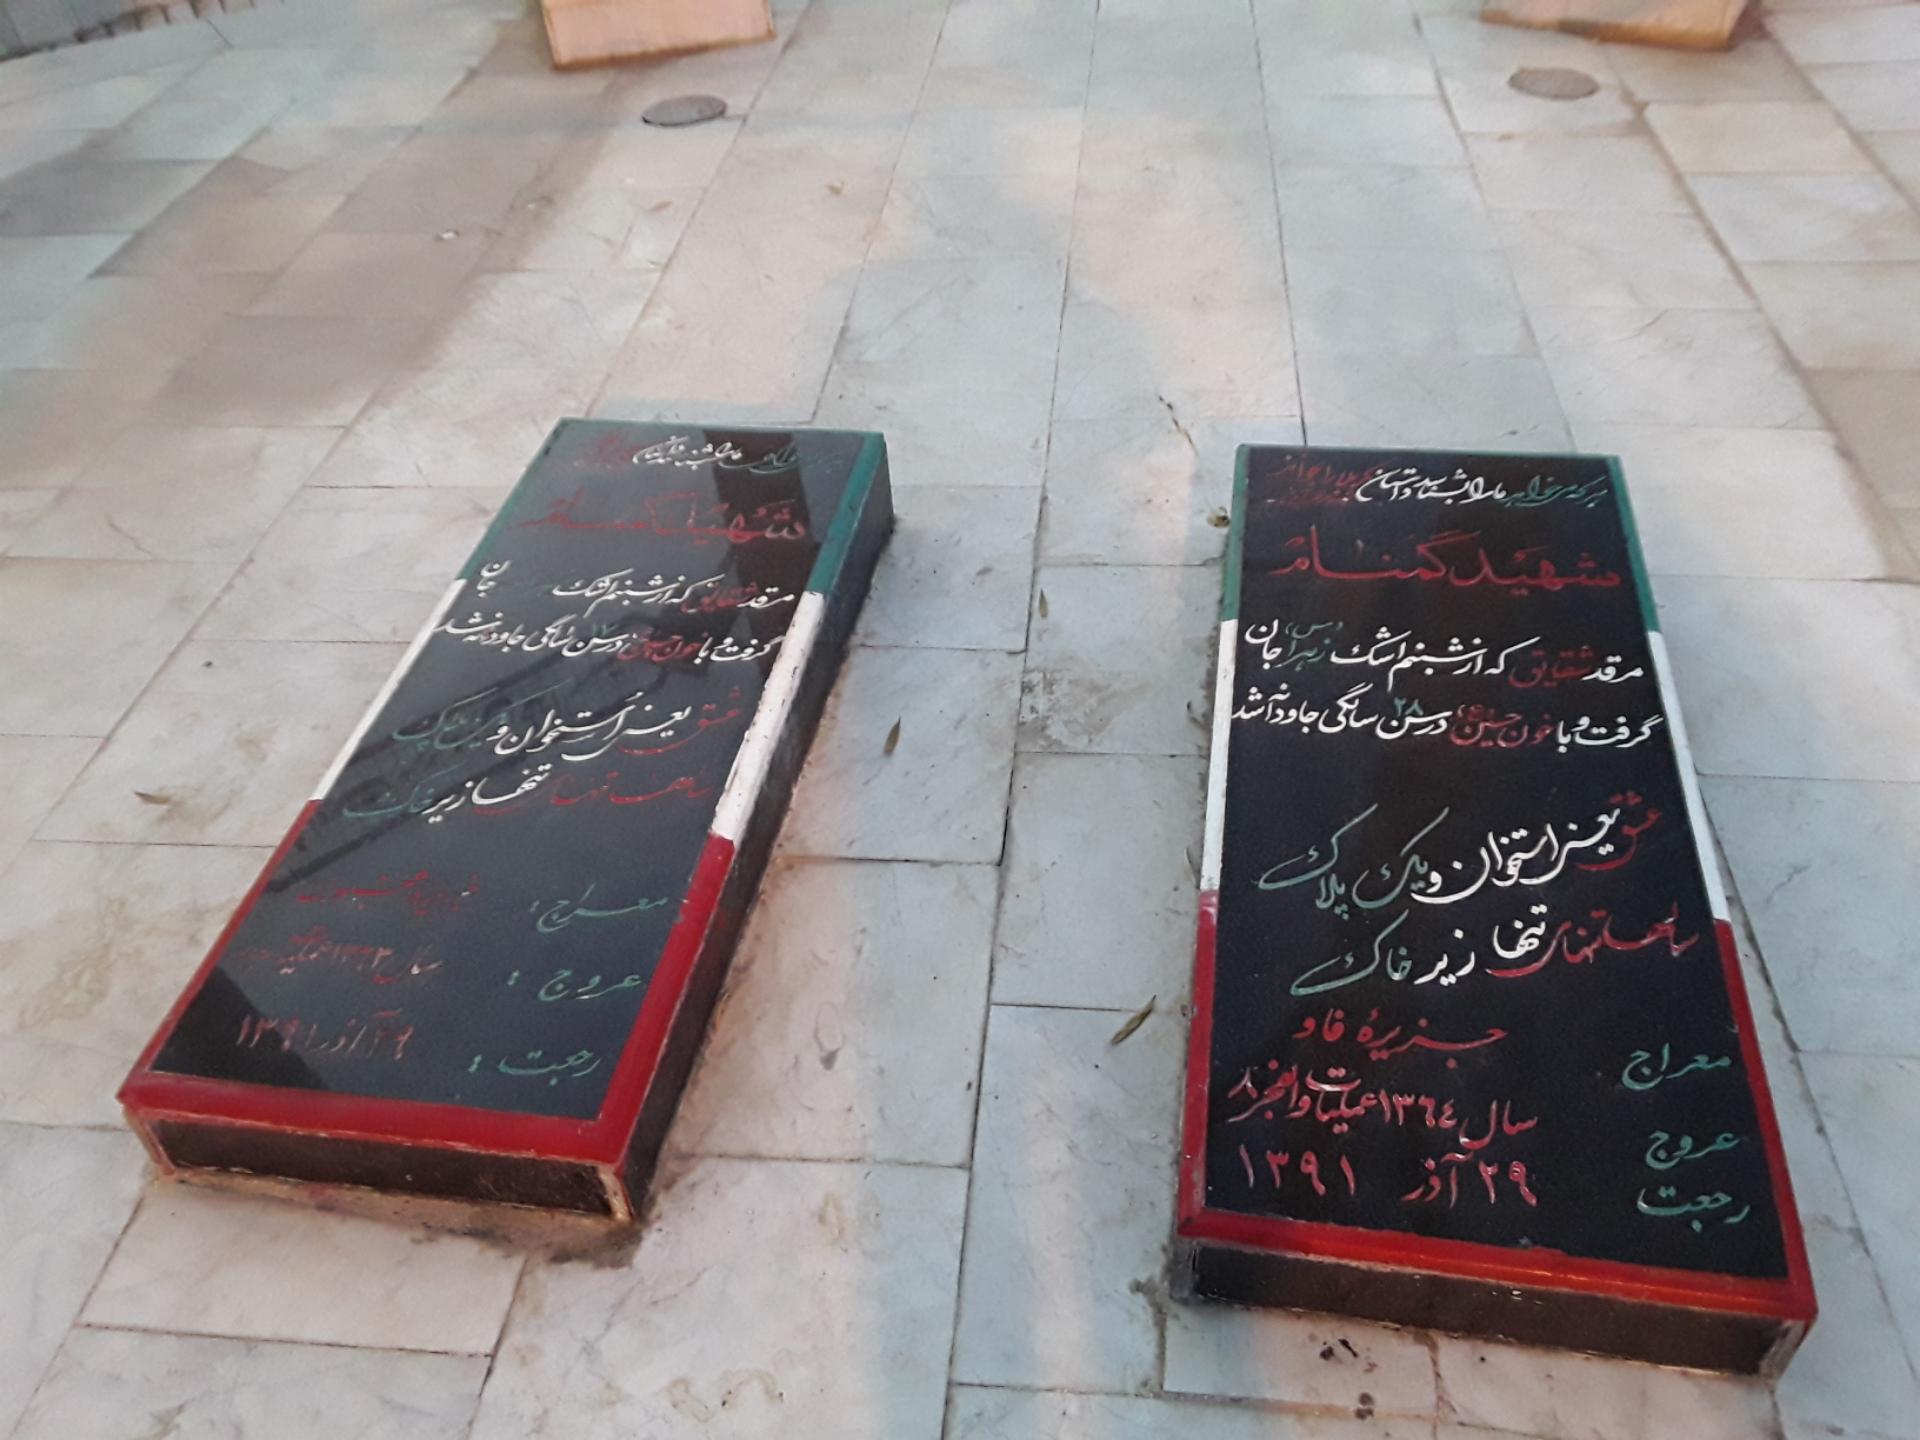 هرکه می‌خواهد ما را بشناسد داستان کربلا را بخواند
شهید گمنام
مرقد شقایق که از شبنم اشک زهرا (س) جان
گرفت و با خون حسین (ع) در سن ۲۸ سالگی جاودانه شد
عشق یعنی استخوان و یک پلاک
سالها تنهای تنها زیر خاک
معراج جزیرهٔ فاو
عروج سال ۱۳۶۴ عملیات والفجر ۸
رجعت ۲۹ آذر ۱۳۹۱
ما را بشناسد داستان
شهید گمنام
مرقد شقایق که از شبنم اشک جان
گرفت و با خون حسین در سن سالگی جاودانه شد
عشق یعنی استخوان و یک پلاک
سالها تنهای تنها زیر خاک
معراج :
عروج : سال ۱۳۶۳ عملیات
رجعت : ۲۹ آذر ۱۳۹۱